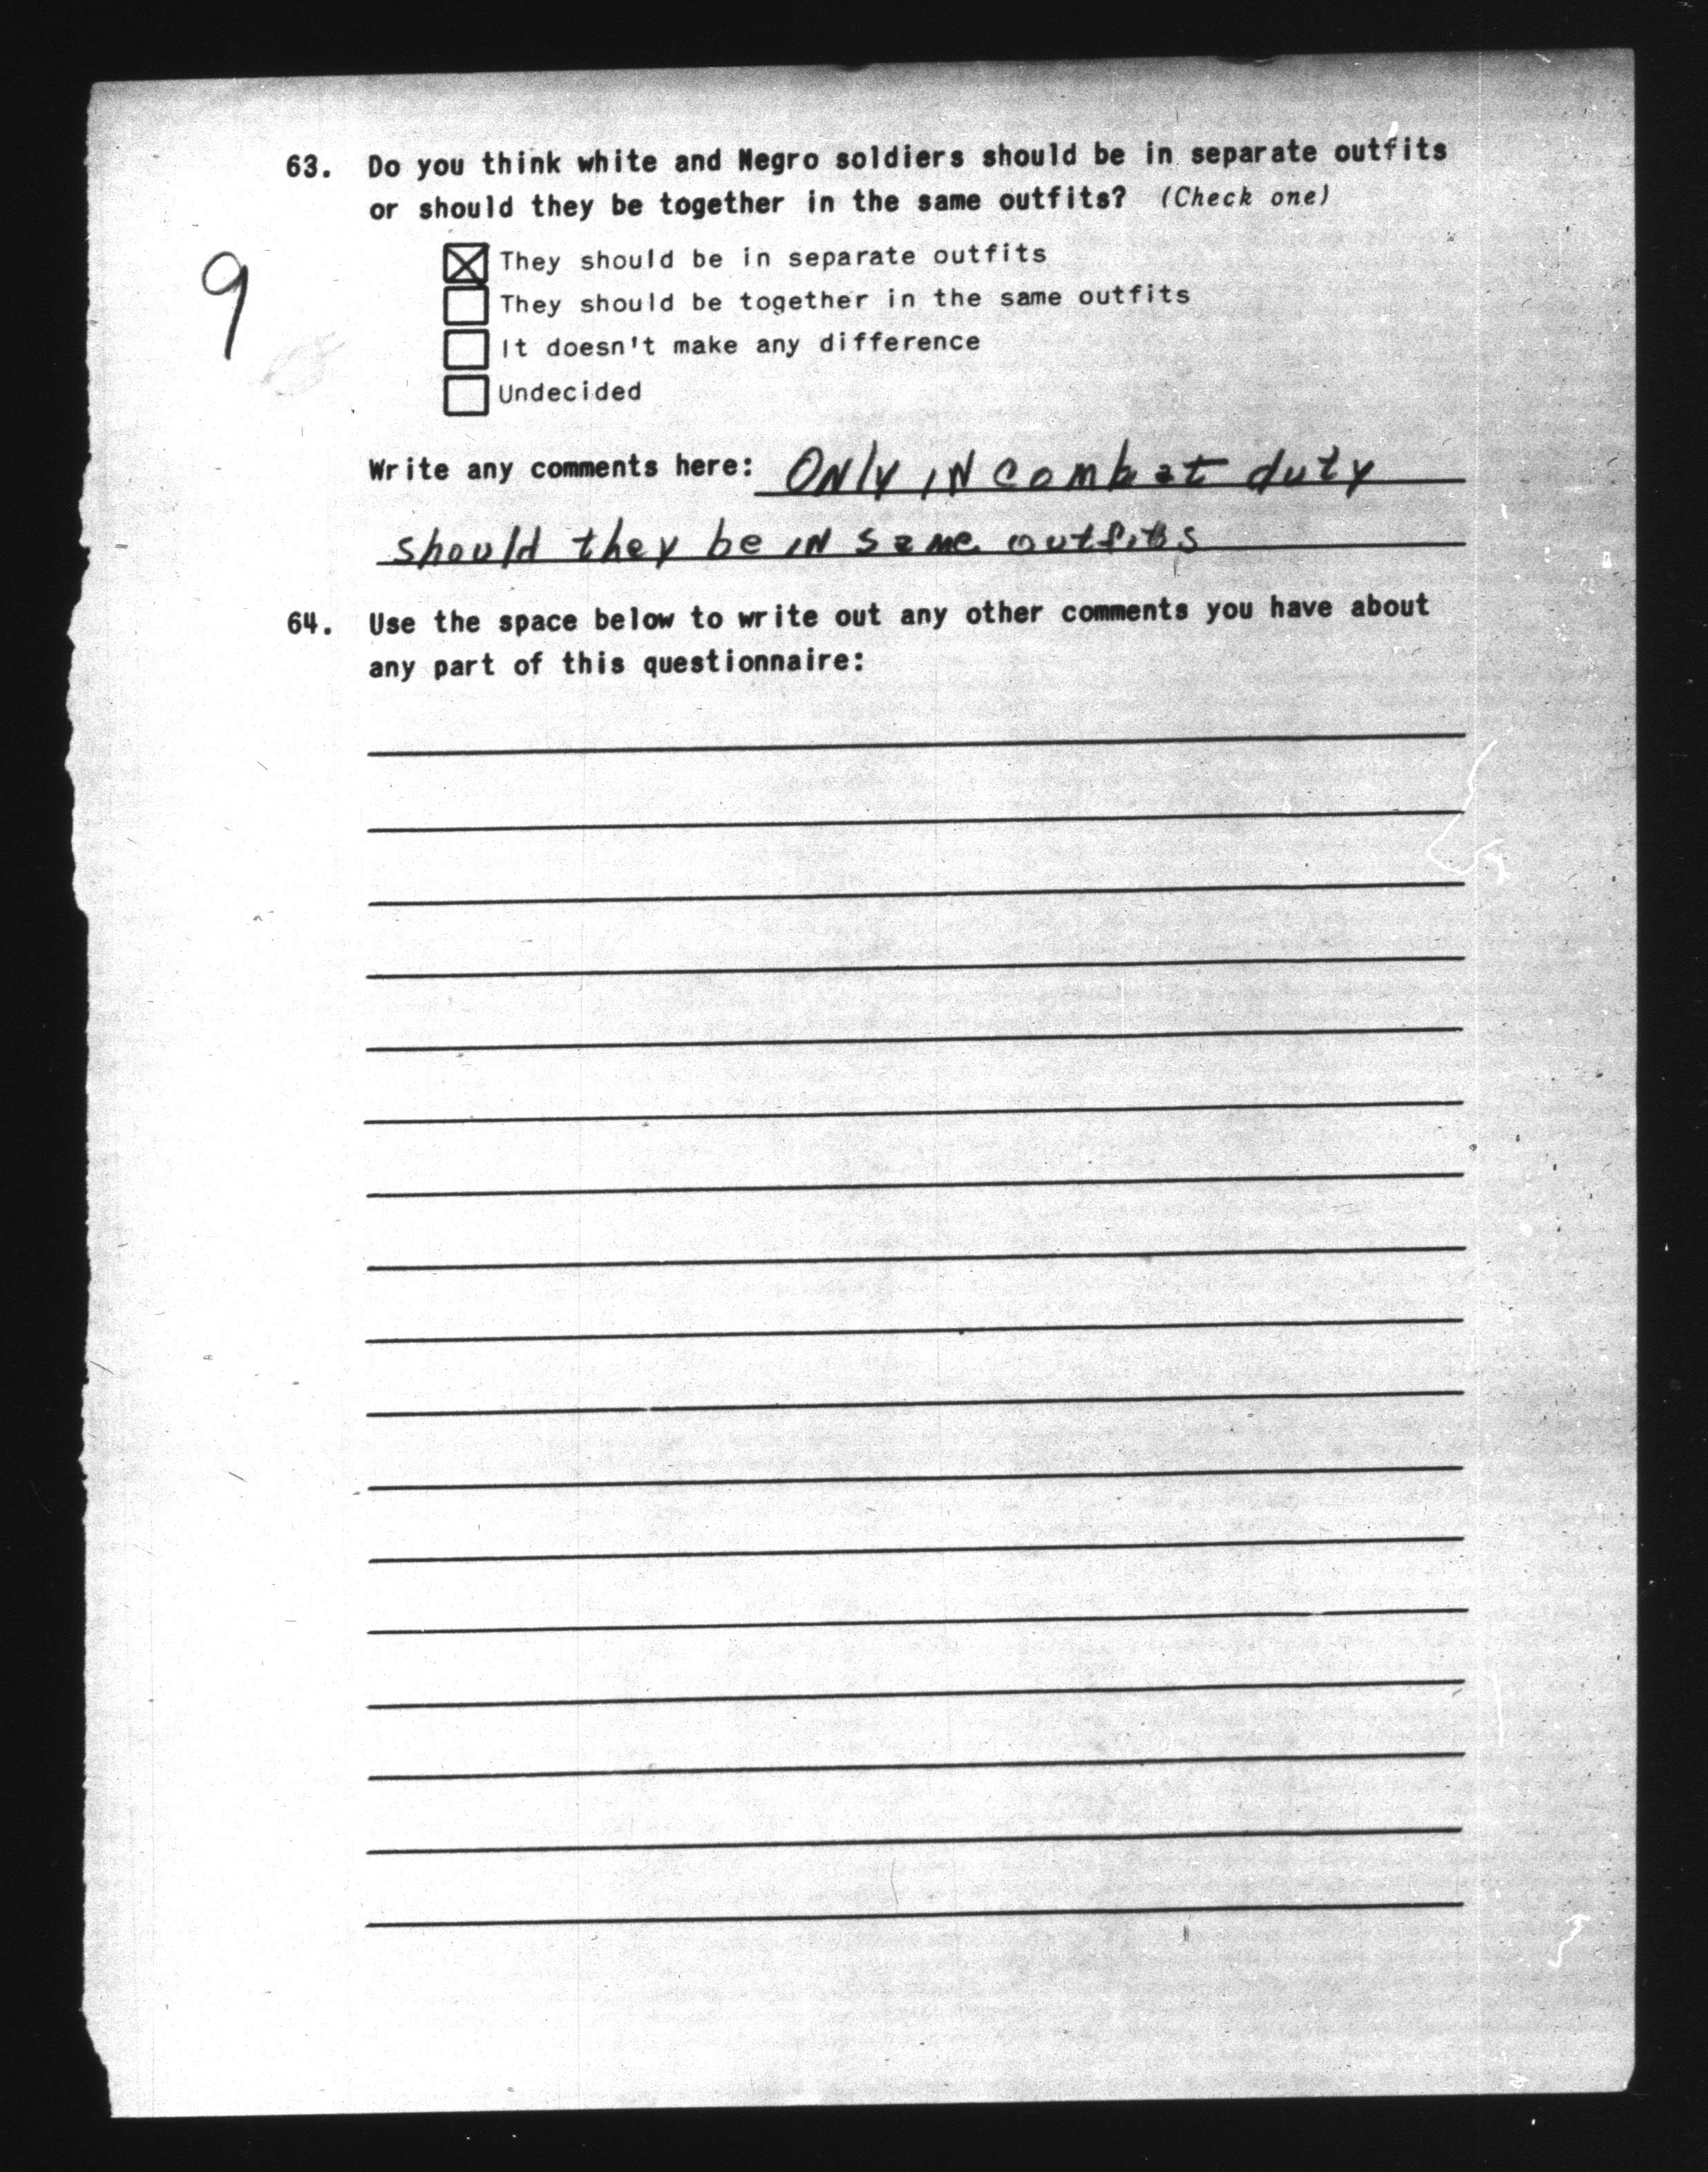 63. Do you think white and Negro soldiers should be in separate outfits
or should they be together in the same outfits? (Check one)
9
☒ They should be in separate outfits
☐ They should be together in the same outfits
☐ It doesn't make any difference
☐ Undecided
Write any comments here: ONly IN combat duty
should they be IN same outfits
64. Use the space below to write out any other comments you have about
any part of this questionnaire: